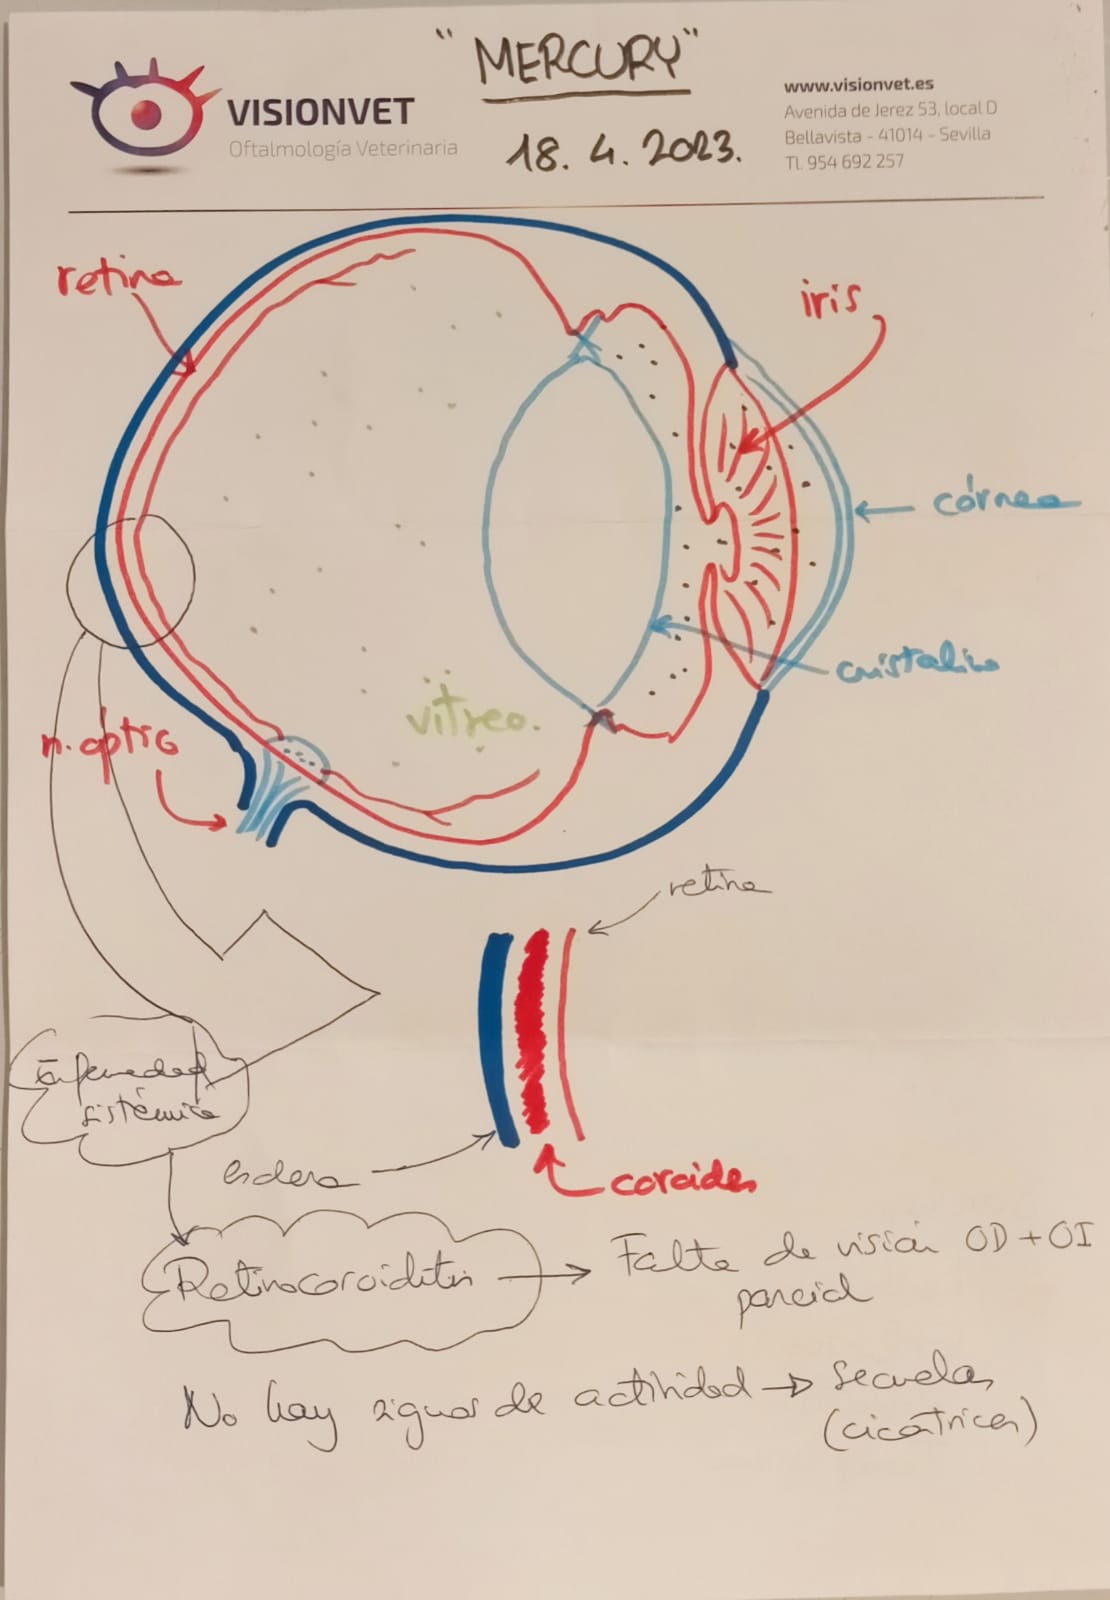 "MERCURY"
VISIONVET
Oftalmología Veterinaria
18. 4. 2023.
www.visionvet.es
Avenida de Jerez 53, local D
Bellavista - 41014 - Sevilla
Tl. 954 692 257
retina
iris
córnea
cristalino
vitreo.
n. optico
retina
Enfermedad
sistémica
esclera
coroides
Retinocoroiditis
Falta de visión OD + OI
parcial
No hay signos de actividad → secuelas
(cicatrices)